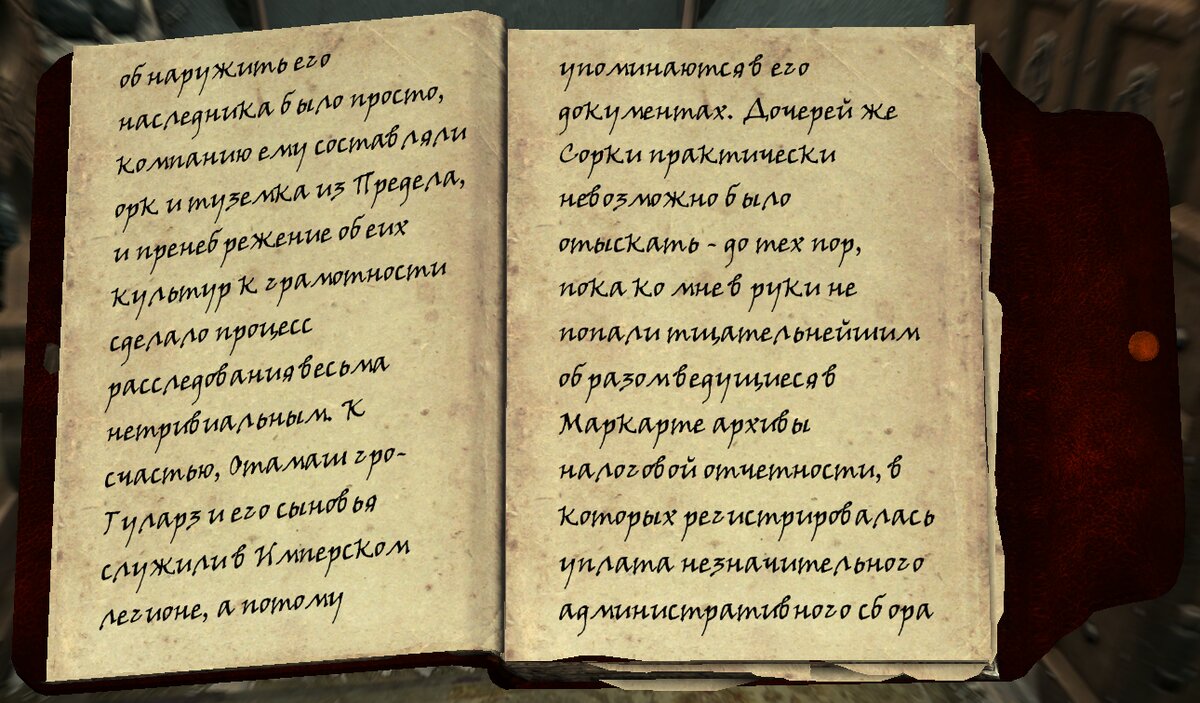 обнаружить его
наследника было просто,
компанию ему составляли
орк и туземка из Предела,
и пренебрежение обеих
культур к грамотности
сделало процесс
расследования весьма
нетривиальным. К
счастью, Отамаш гро-
Гуларз и его сыновья
служили в Имперском
легионе, а потому
упоминаются в его
документах. Дочерей же
Сорки практически
невозможно было
отыскать - до тех пор,
пока ко мне в руки не
попали тщательнейшим
образом ведущиеся в
Маркарте архивы
налоговой отчетности, в
которых регистрировалась
уплата незначительного
административного сбора